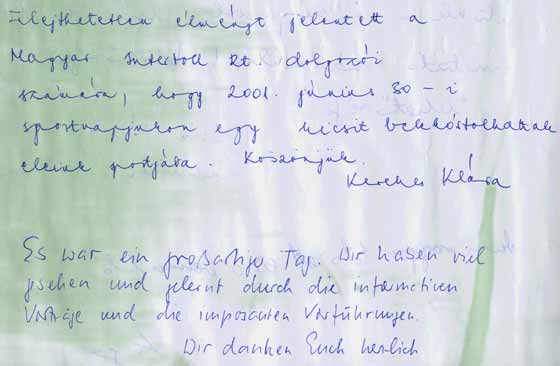 Felejthetetlen élményt jelentett a
Magyar Intertoll Rt dolgozói
számára, hogy 2001. június 30-i
sportnapjukon egy kicsit belekóstolhattak
eleink sportjába. Köszönjük.
Kerekes Klára
Es war ein großartiger Tag. Wir haben viel
gesehen und gelernt durch die informativen
Vorträge und die imposanten Vorführungen.
Wir danken Euch herzlich